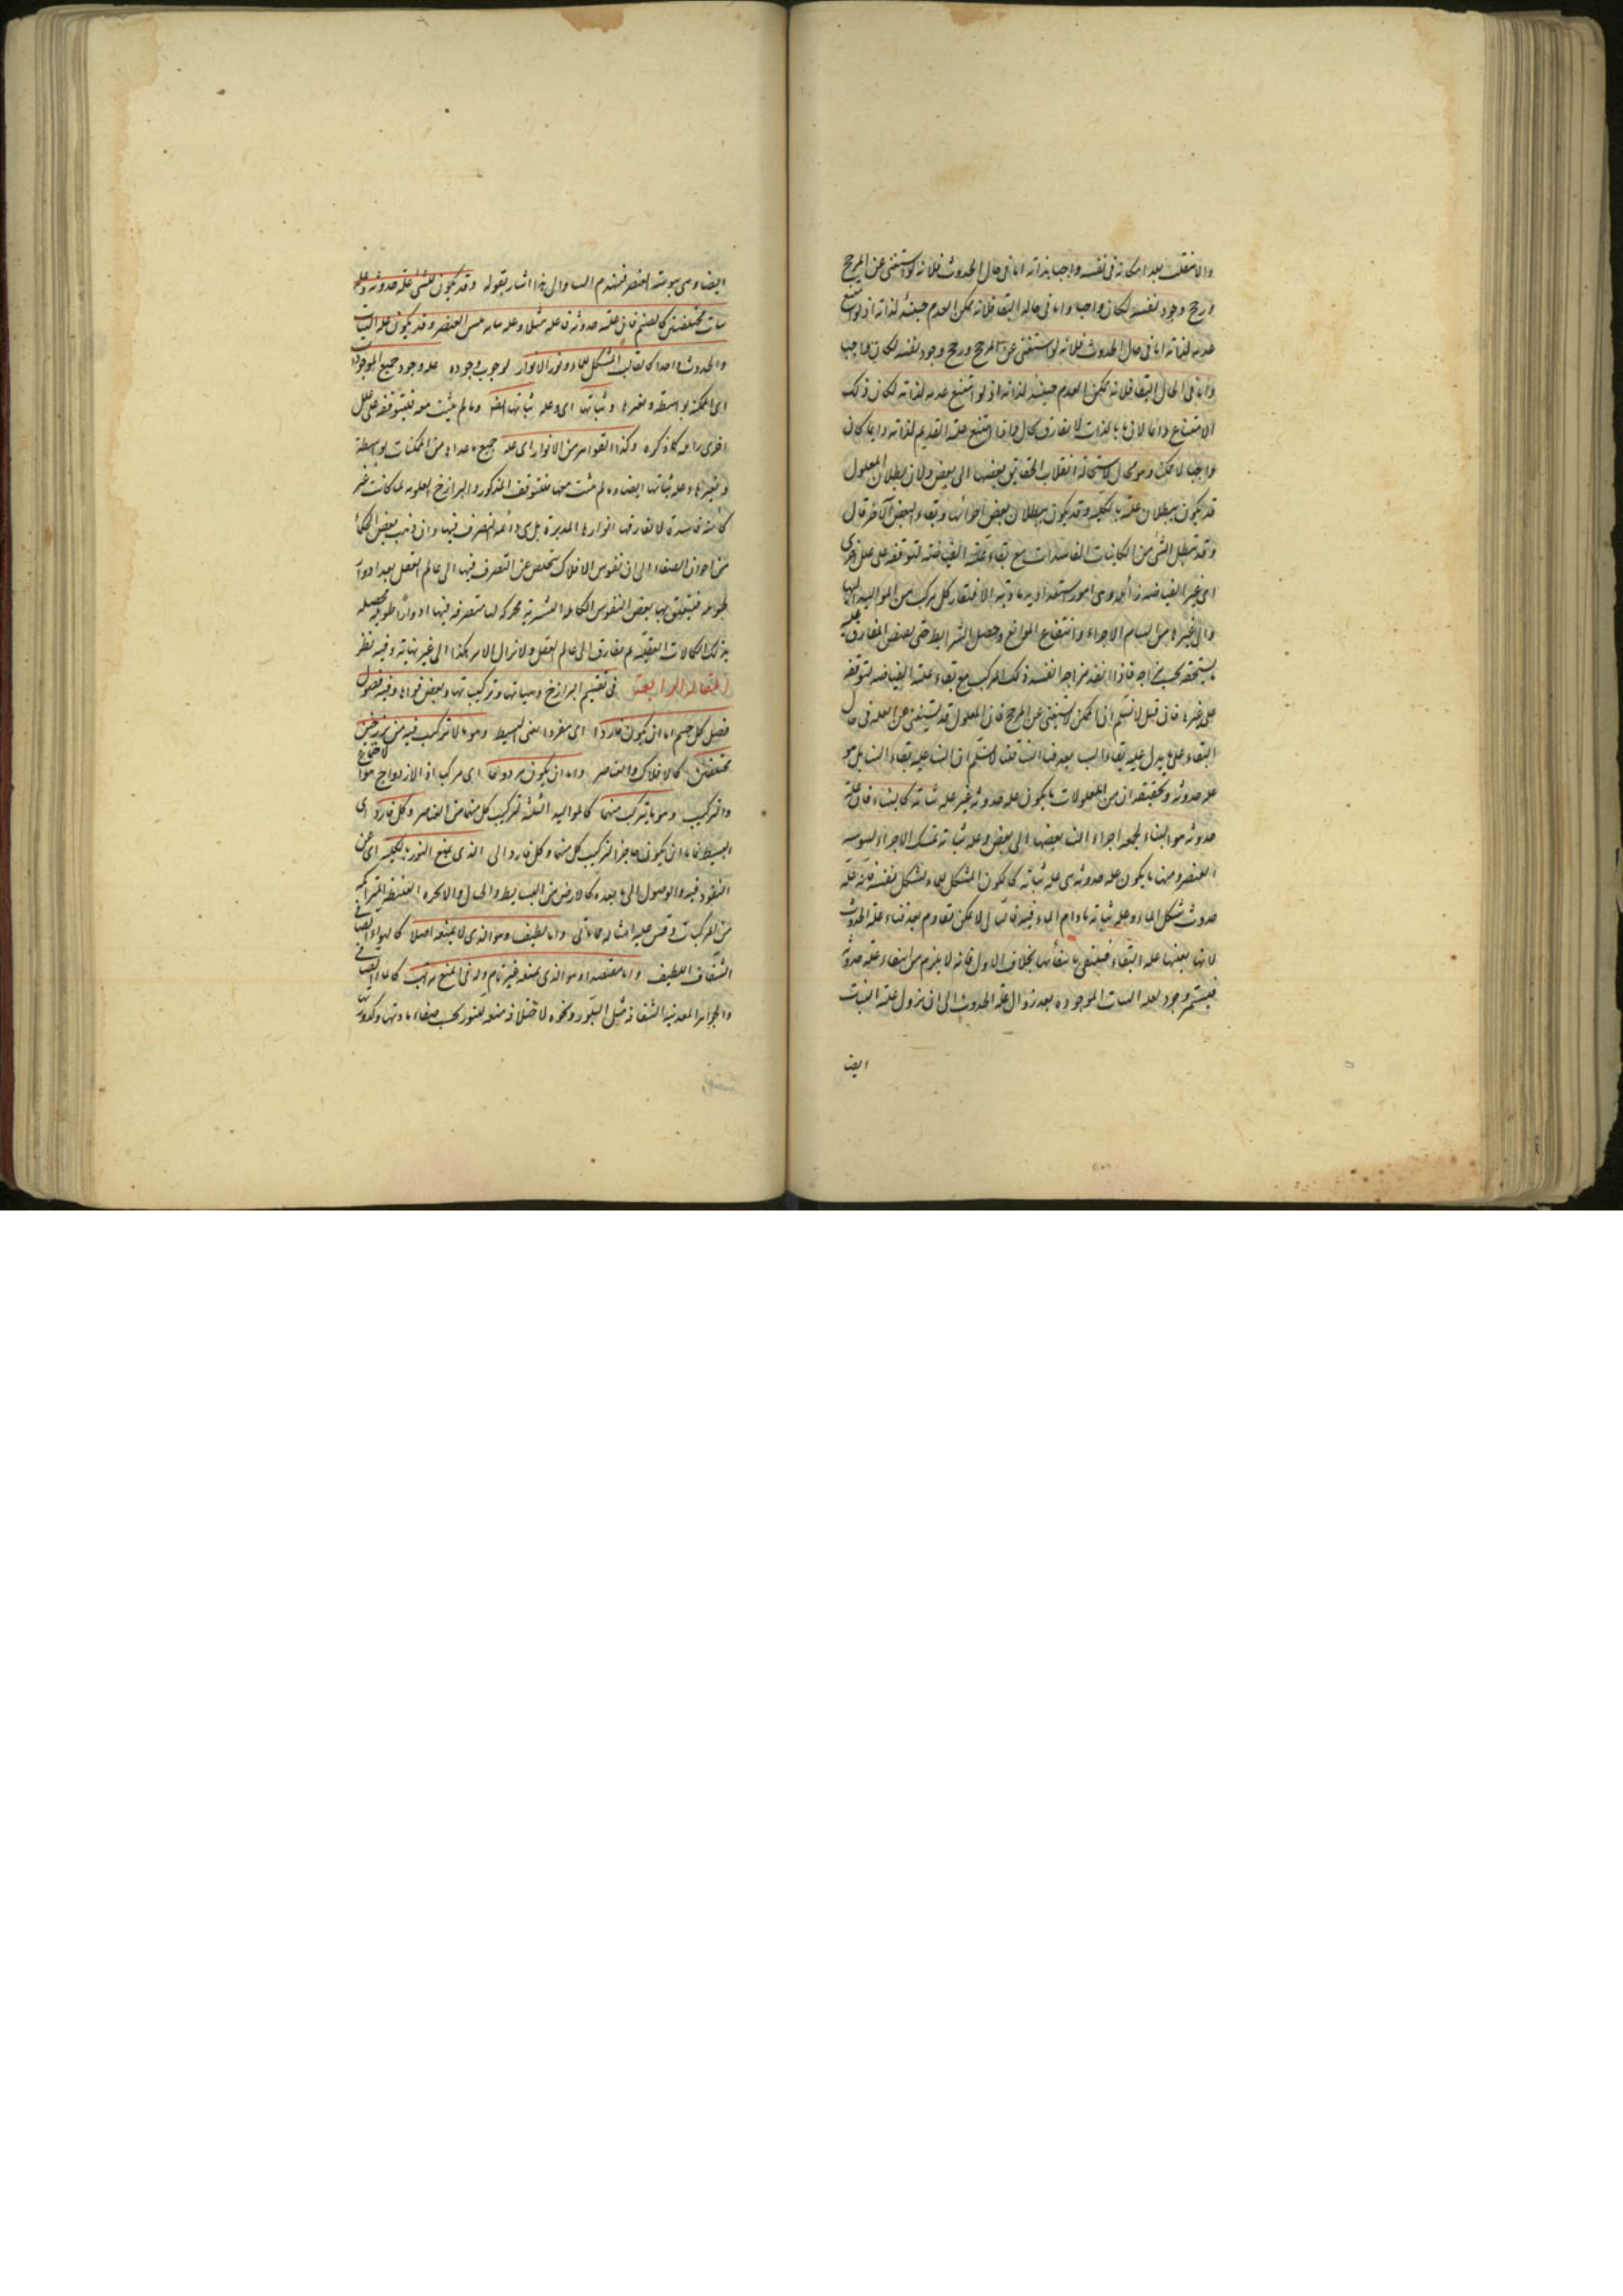 والا لانقلب بعد امكانه فى نفسه واجبا بذاته اما فى حال الحدوث فلانه لو استغنى عن المرجح
ورجح وجود نفسه لكان واجبا واما فى حاله البقا فلانه ممكن العدم حينئذ لذاته اذ لو امتنع
عدمه لذاته اما فى حال الحدوث فلانه لو استغنى عن المرجح ورجح وجود نفسه لكان واجبا
واما فى الحال البقا فلانه ممكن العدم حينئذ لذاته اذ لو امتنع عدمه لذاته لكان ذلك
الامتناع دائما لان ما بالذات لا يفارق بحال واذا امتنع عليه العدم لذاته دائما كان
واجبا لا ممكنا وهو محال لاستحالة انقلاب الحقايق بعضها الى بعض ولان بطلان المعلول
قد يكون ببطلان علته بالكليه وقد يكون ببطلان بعض اجزائها وبقاء البعض الآخر قال
وقد تبطل الشئ من الكاينات الفاسدات مع بقاء علته الفياضه لتوقفه على علل اخرى
اى غير الفياضه زائله وهى امور استعداديه ماديه لافتقار كل مركب من المواليد اليها
والى غيرها من التيام الاجزاء وانتفاع الموانع وحصول الشرايط حتى يفيض المفارق عليه
ما يستحقه بحسب مزاجه فاذا انفسد مزاجه انفسد ذلك المركب مع بقاء علته الفياضه لتوقفه
على غيرها فان قيل لا نسلم ان الممكن لا يستغنى عن المرجح فان المعلول قد يستغنى عن العله فى حال
البقاء على ما يدل عليه بقاء البنا بعد فنا البنا قلنا لا نسلم ان البنا عله بقاء البنا بل هو
عله حدوثه وتحقيقه ان من المعلولات ما يكون عله حدوثه غير عله ثباته كالبناء فان علة
حدوثه هو البناء لجمعه اجزاء البنا بعضها الى بعض وعله ثباته تماسك الاجزاء ليبوسه
العنصر ومنها ما يكون عله حدوثه هى عله ثباته كما يكون المشكل للماء لشكل نفسه فانه علة
حدوث شكل الماء وعله ثباته ما دام الماء فيه فالثانى لا يمكن بقاوه بعد فناء علة الحدوث
لانها بعينها عله البقاء فينتفى بانتفائها بخلاف الاول فانه لا يلزم من انتفاء علة حدوثه
فيستمر وجود لعله الثبات الموجوده بعد زوال علة الحدوث الى ان يزول علة الثبات
ايضا
ايضا وهى يبوسة العنصر فينهدم البنا والى هذا اشار بقوله وقد يكون للشئ علة حدوثه وعله
ثبات مختلفتين كالصنم فان علة حدوثه فاعله مثلا وعله ثباته يبس العنصر وقد يكون عله الثبات
والحدوث واحدا كالقالب المشكل للماء ونور الانوار لوجوب وجوده عله وجود جميع الموجودات
اى الممكنه بواسطه وبغيرها وثباتها اى وعله ثباتها ايضا وما لم يثبت معه فيتوقفه على علل
اخرى زايله كما ذكره وكذا القواهر من الانوار اى عله جميع ما عداها من الممكنات بواسطة
وبغيرها وعله ثباتها ايضا وما لم يثبت معها فلتوقف المذكور والبرازخ العلويه لما كانت غير
كائنه فاسدة لا تفارقها انوارها المدبرة بل هى دائمة التصرف فيها وان ذهب بعض الحكما
من اخوان الصفاء الى ان نفوس الافلاك تتخلص عن التصرف فيها الى عالم العقل بعد ادوار
طويله فيتعلق بها بعض النفوس الكامله البشريه محركه لها متصرفه فيها ادوارا طويله محصله
بذلك الكمالات العقليه ثم تفارق الى عالم العقل ولا يزال الامر هكذا الى غير نهايته وفيه نظر
المقاله الرابعة فى تقسيم البرازخ وهيآتها وتركيباتها وبعض قواها وفيه فصول
فصل كل جسم اما ان يكون فاردا اى مفردا يعنى البسيط وهو ما لا تركيب فيه من برزخين
مختلفين كالافلاك والعناصر واما ان يكون مزدوجا اى مركبا اذ الازدواج هو الاجتماع
والتركيب وهو ما يتركب منهما كالمواليد الثلثه لتركيب كل منها من العناصر وكل فارد اى
البسيط فاما ان يكون حاجزا لتركيب كل منها وكل فارد الى الذى يمنع النور بالكليه اى عن
النفوذ فيه والوصول الى ما بعده كالارض من البسايط والجبال والابخره الغليظه المتراكمه
من المركبات وقس عليه امثاله فيما ياتى واما لطيف وهو الذى لا يمنعه اصلا كالهواء الصافى
الشفاف اللطيف واما مقتصد او هو الذى يمنعه غير تام وله فى المنع مراتب كالماء الصافى
والجواهر المعدنيه الشفافه مثل البلور ونحوه لاختلافه منعه للنور بحسب صفاء مادتها وكدورتها